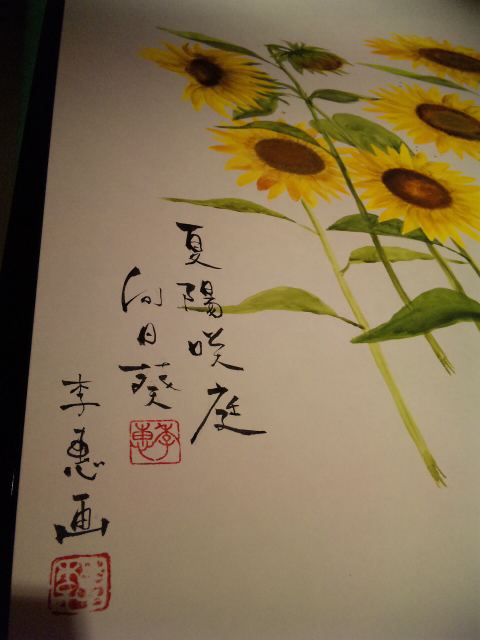 夏陽咲庭
向日葵
李惠
李惠画